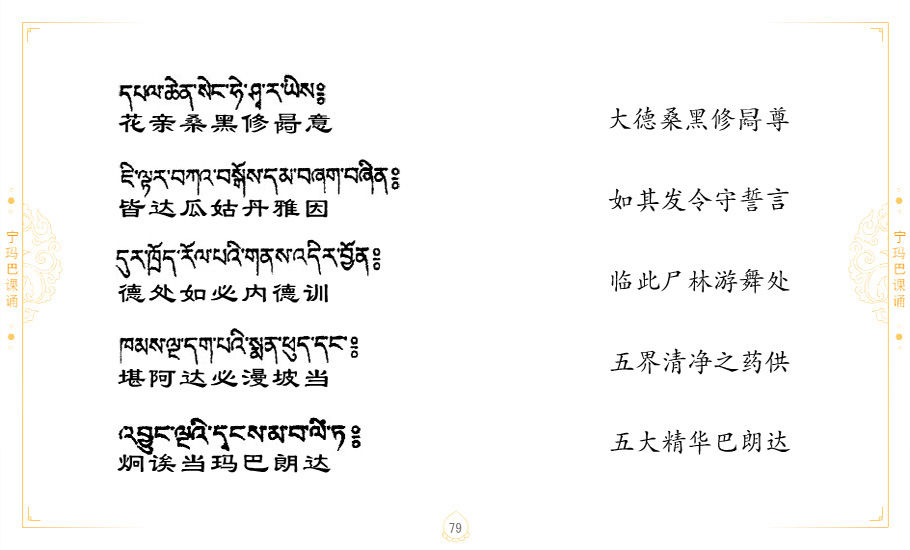 དཔལ་ཆེན་སེང་ཧེ་ཤྭ་ར་ཡིས༔
花亲桑黑修冔意
大德桑黑修冔尊
ཇི་ལྟར་བཀའ་བསྒོས་དམ་བཞག་བཞིན༔
皆达瓜姑丹雅因
如其发令守誓言
དུར་ཁྲོད་རོལ་པའི་གནས་འདིར་བྱོན༔
德处如必内德训
临此尸林游舞处
ཁམས་ལྔ་དག་པའི་སྨན་ཕུད་དང་༔
堪阿达必漫坡当
五界清净之药供
འབྱུང་ལྔའི་དྭངས་མ་བ་ལིཾ་ཏ༔
炯诶当玛巴朗达
五大精华巴朗达
宁玛巴课诵
宁玛巴课诵
79